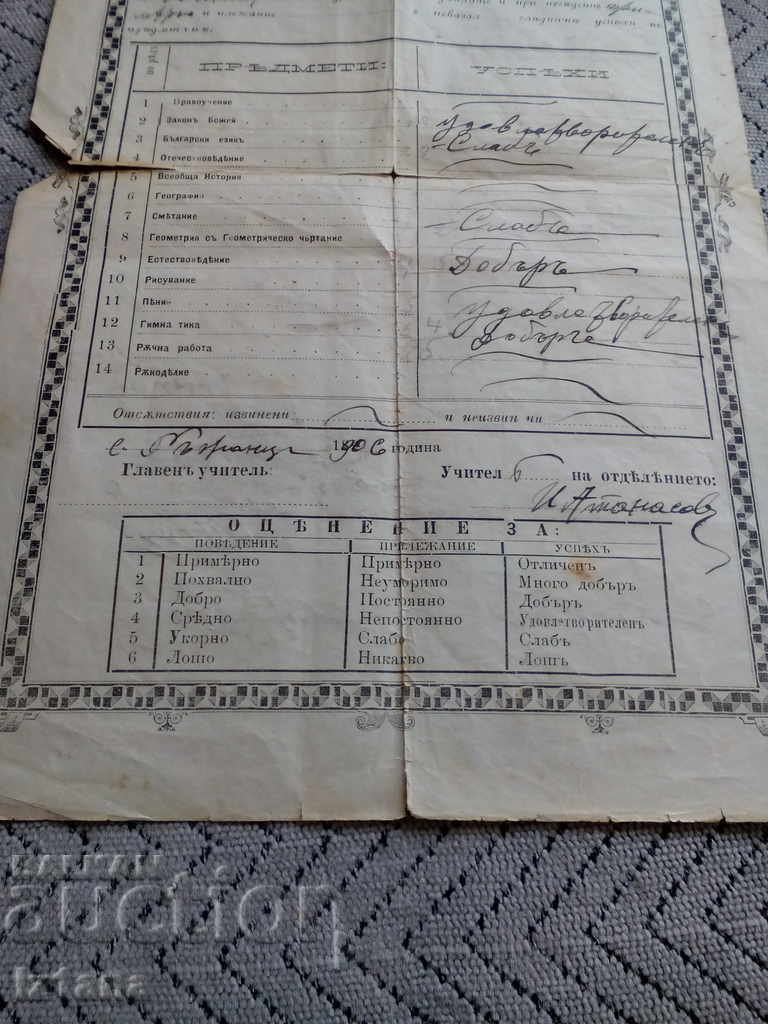 и прилежание
по редъ ПРѢДМЕТИ: УСПѢХИ
1 Нравоучение
2 Законъ Божей удовлетворителенъ
3 Български езикъ Слабъ
4 Отечествовѣдѣние
5 Всеобща История
6 География
7 Смѣтание Слабъ
8 Геометрия съ Геометрическо чъртание
9 Естествовѣдение Добъръ
10 Рисувание
11 Пѣние удовлетворителенъ
12 Гимна тика Добъръ
13 Рѫчна работа
14 Рѫкодѣлие
Отсѫтствия: извинени и неизвин чи
с. 1906 година
Главенъ учитель: Учител на отдѣлѣнието:
И Атанасовъ
ОЦѢНЕНИЕ ЗА:
ПОВѢДЕНИЕ ПРИЛЕЖАНИЕ УСПѢХЪ
1 Примѣрно Примѣрно Отличенъ
2 Похвално Неуморимо Много добъръ
3 Добро Постоянно Добъръ
4 Срѣдно Непостоянно Удовлѣтворителенъ
5 Укорно Слабо Слабъ
6 Лошо Никакво Лошъ
БАЛКАН
auction
Iztana